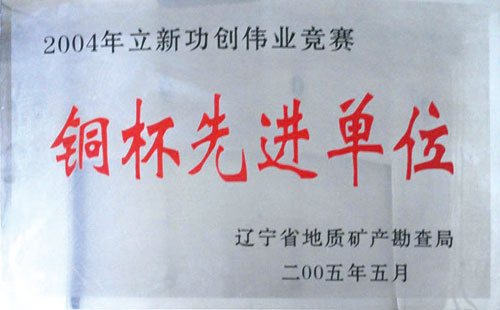 2004年立新功创伟业竞赛
铜杯先进单位
辽宁省地质矿产勘查局
二00五年五月